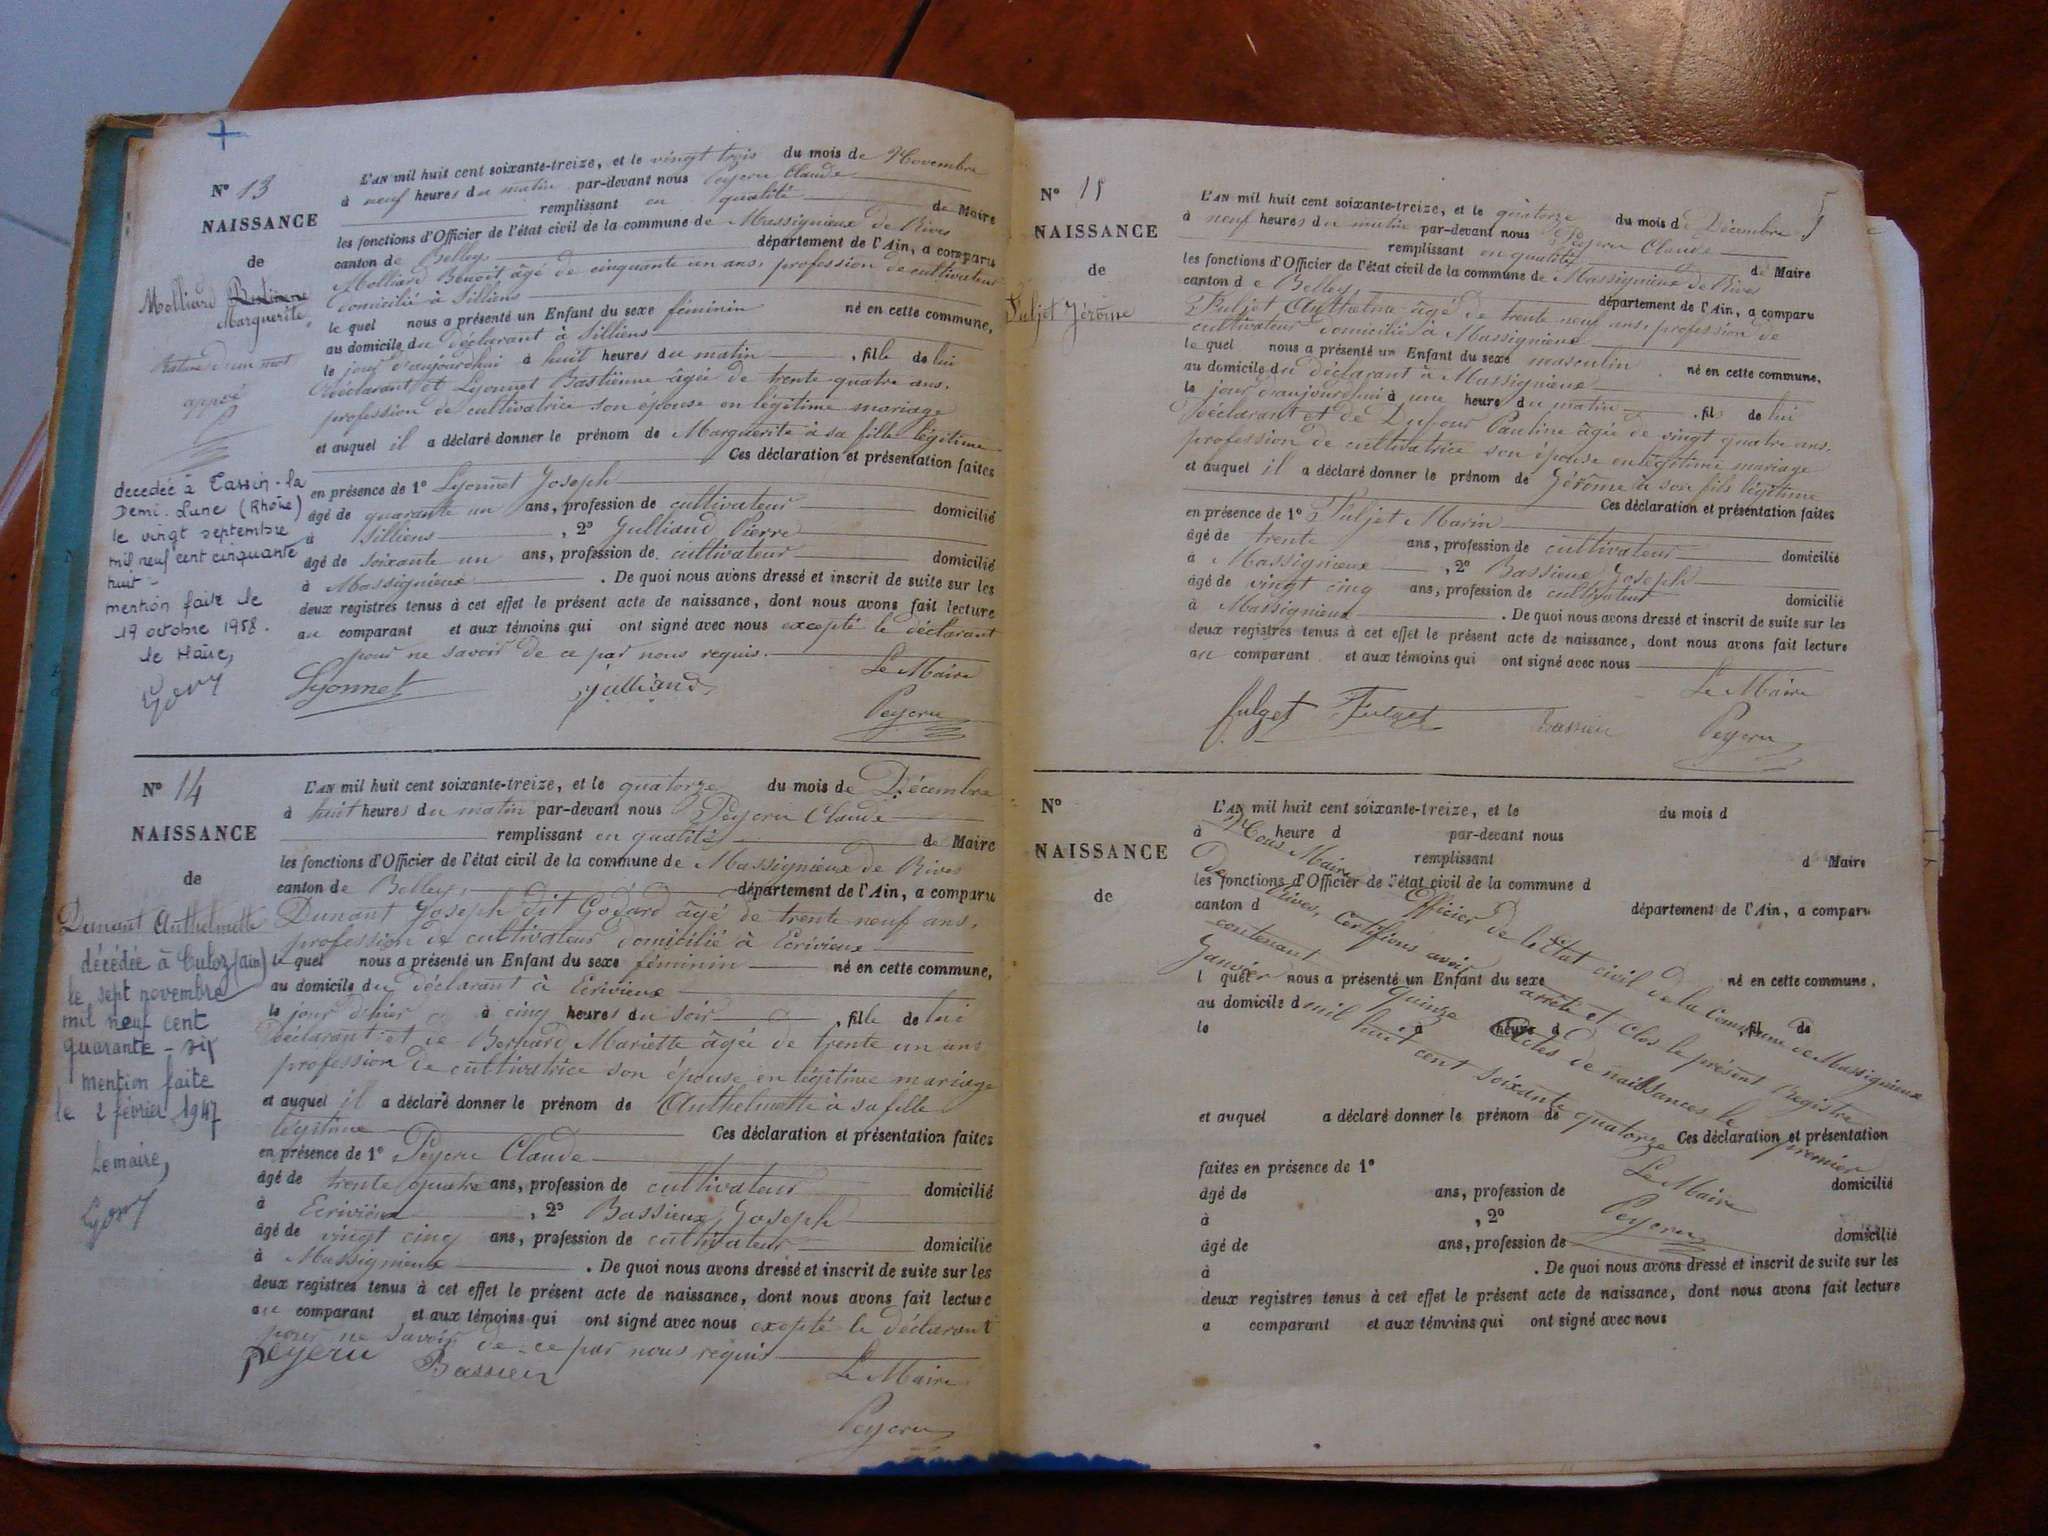 N° 13
NAISSANCE
de
Molliard
Marguerite
Rature d'un mot
décédée à Tassin-la
Demi-Lune (Rhône)
le vingt septembre
mil neuf cent cinquante
huit -
mention faite le
19 octobre 1958.
le Maire,
L'AN mil huit cent soixante-treize, et le vingt trois du mois de Novembre
à neuf heures du matin par-devant nous Peyeru Claude
remplissant en qualité de Maire
les fonctions d'Officier de l'état civil de la commune de Massignieux de Rives
canton de Belley département de l'Ain, a comparu
Molliard Benoît âgé de cinquante un ans, profession de cultivateur
domicilié à Silliens
le quel nous a présenté un Enfant du sexe féminin né en cette commune,
au domicile du déclarant à Silliens
le jour d'aujourd'hui à huit heures du matin , fille de lui
déclarant et Lyonnet Bastienne âgée de trente quatre ans,
profession de cultivatrice son épouse en légitime mariage
et auquel il a déclaré donner le prénom de Marguerite à sa fille légitime
Ces déclaration et présentation faites
en présence de 1° Lyonnet Joseph
âgé de quarante un ans, profession de cultivateur domicilié
à Silliens , 2° Julliand Pierre
âgé de soixante un ans, profession de cultivateur domicilié
à Massignieux . De quoi nous avons dressé et inscrit de suite sur les
deux registres tenus à cet effet le présent acte de naissance, dont nous avons fait lecture
au comparant et aux témoins qui ont signé avec nous excepté le déclarant
pour ne savoir de ce par nous requis.
Le Maire
Lyonnet Julliand
Peyeru
N° 14
NAISSANCE
de
Dunant Anthelmette
décédée à Culoz (ain)
le sept novembre
mil neuf cent
quarante - six
mention faite
le 2 février 1947
Lemaire,
L'AN mil huit cent soixante-treize, et le quatorze du mois de Décembre
à huit heures du matin par-devant nous Peyeru Claude
remplissant en qualité de Maire
les fonctions d'Officier de l'état civil de la commune de Massignieux de Rives
canton de Belley département de l'Ain, a comparu
Dunant Joseph dit Godard âgé de trente neuf ans,
profession de cultivateur domicilié à Ecrivieux
le quel nous a présenté un Enfant du sexe féminin né en cette commune,
au domicile du déclarant à Ecrivieux
le jour d'hier à cinq heures du soir , fille de lui
déclarant et de Bernard Mariette âgée de trente un ans
profession de cultivatrice son épouse en légitime mariage
et auquel il a déclaré donner le prénom de Anthelmette à sa fille
légitime Ces déclaration et présentation faites
en présence de 1° Peyeru Claude
âgé de trente quatre ans, profession de cultivateur domicilié
à Ecrivieux , 2° Bassieux Joseph
âgé de vingt cinq ans, profession de cultivateur domicilié
à Massignieux . De quoi nous avons dressé et inscrit de suite sur les
deux registres tenus à cet effet le présent acte de naissance, dont nous avons fait lecture
au comparant et aux témoins qui ont signé avec nous excepté le déclarant
pour ne savoir de ce par nous requis
Peyeru Bassieu
Le Maire
Peyeru
5
N° 15
NAISSANCE
de
Puljet Jérôme
L'AN mil huit cent soixante-treize, et le quatorze du mois de Décembre
à neuf heures du matin par-devant nous Peyeru Claude
remplissant en qualité de Maire
les fonctions d'Officier de l'état civil de la commune de Massignieux de Rives
canton de Belley département de l'Ain, a comparu
Puljet Anthelme âgé de trente neuf ans, profession de
cultivateur domicilié à Massignieux
le quel nous a présenté un Enfant du sexe masculin né en cette commune,
au domicile du déclarant à Massignieux
le jour d'aujourd'hui à une heure du matin , fils de lui
déclarant et de Dufour Pauline âgée de vingt quatre ans,
profession de cultivatrice son épouse en légitime mariage
et auquel il a déclaré donner le prénom de Jérôme à son fils légitime
Ces déclaration et présentation faites
en présence de 1° Puljet Marin
âgé de trente ans, profession de cultivateur domicilié
à Massignieux , 2° Bassieux Joseph
âgé de vingt cinq ans, profession de cultivateur domicilié
à Massignieux . De quoi nous avons dressé et inscrit de suite sur les
deux registres tenus à cet effet le présent acte de naissance, dont nous avons fait lecture
au comparant et aux témoins qui ont signé avec nous
Le Maire
fulget Fulget Bassieu Peyeru
N°
NAISSANCE
de
L'AN mil huit cent soixante-treize, et le du mois d
à heure d par-devant nous
remplissant d Maire
les fonctions d'Officier de l'état civil de la commune d
canton d département de l'Ain, a comparu
l quel nous a présenté un Enfant du sexe né en cette commune,
au domicile d
le à heure d , fil de
et auquel a déclaré donner le prénom de
Ces déclaration et présentation
faites en présence de 1°
âgé de ans, profession de domicilié
à , 2°
âgé de ans, profession de domicilié
à . De quoi nous avons dressé et inscrit de suite sur les
deux registres tenus à cet effet le présent acte de naissance, dont nous avons fait lecture
a comparant et aux témoins qui ont signé avec nous
Nous Maire Officier de l'Etat civil de la Commune de Massignieux
de Rives, Certifions avoir arrêté et clos le présent Registre
contenant quinze Actes de naissances le premier
Janvier mil huit cent soixante quatorze
Le Maire
Peyeru